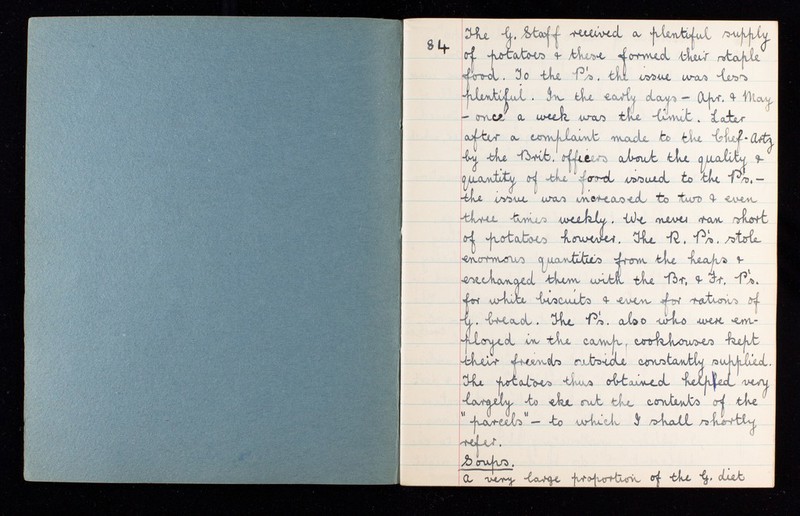 84
The G. Staff received a plentiful supply
of potatoes & these formed their staple
food. To the P's. the issue was less
plentiful. In the early days – Apr. & May
– once a week was the limit. Later
after a complaint made to the Chef-Artz
by the Brit. officers about the quality &
quantity of the food issued to the P's. –
the issue was increased to two & even
three times weekly. We never ran short
of potatoes however. The R. P's. stole
enormous quantities from the heaps &
exchanged them with the Br. & Fr. P's.
for white biscuits & even for rations of
G. bread. The P's. also who were em-
ployed in the camp, cookhouses kept
their freinds outside constantly supplied.
The potatoes thus obtained helpled very
largely to eke out the contents of the
"parcels" – to which I shall shortly
refer.
Soups.
A very large proportion of the G. diet